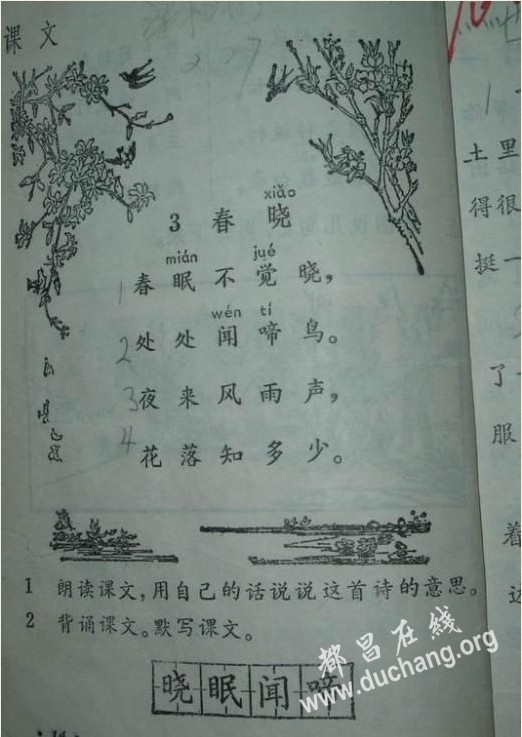 课文
xiǎo
3 春晓
mián jué
1 春眠不觉晓，
wén tí
2 处处闻啼鸟。
3 夜来风雨声，
4 花落知多少。
1 朗读课文，用自己的话说说这首诗的意思。
2 背诵课文。默写课文。
晓眠闻啼
土里
得很
挺一
了
服
着
都昌在线
www.duchang.org